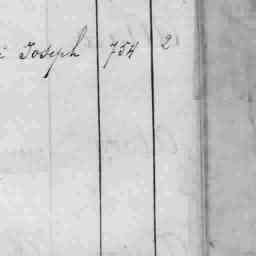 Joseph 754 2